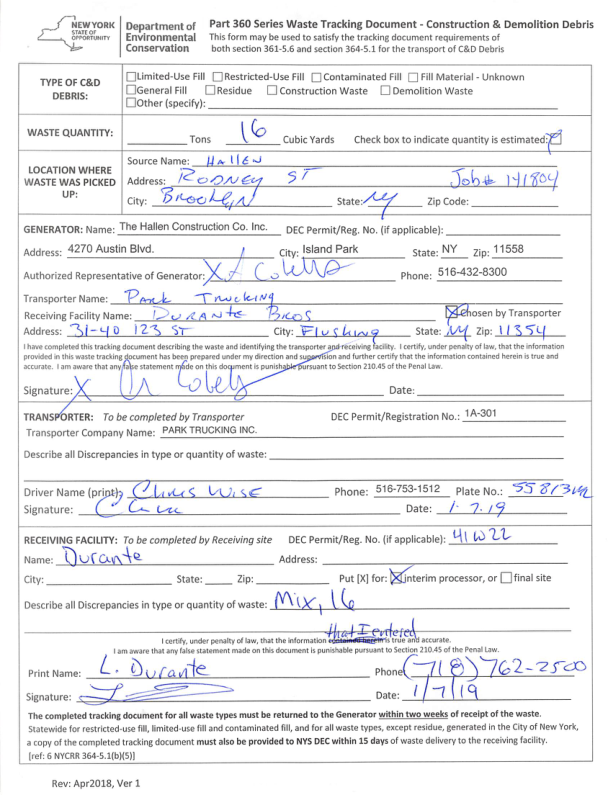 NEW YORK STATE OF OPPORTUNITY
Department of Environmental Conservation
Part 360 Series Waste Tracking Document - Construction & Demolition Debris
This form may be used to satisfy the tracking document requirements of
both section 361-5.6 and section 364-5.1 for the transport of C&D Debris
TYPE OF C&D DEBRIS:
☐Limited-Use Fill ☐Restricted-Use Fill ☐Contaminated Fill ☐Fill Material - Unknown
☐General Fill ☐Residue ☐Construction Waste ☐Demolition Waste
☐Other (specify):
WASTE QUANTITY: Tons 16 Cubic Yards Check box to indicate quantity is estimated: ☒
LOCATION WHERE WASTE WAS PICKED UP:
Source Name: HALLEN
Address: RODNEY ST Job# 141804
City: BROOKLYN State: NY Zip Code:
GENERATOR: Name: The Hallen Construction Co. Inc. DEC Permit/Reg. No. (if applicable):
Address: 4270 Austin Blvd. City: Island Park State: NY Zip: 11558
Authorized Representative of Generator: X Phone: 516-432-8300
Transporter Name: PARK TRUCKING
Receiving Facility Name: DURANTE BROS ☒Chosen by Transporter
Address: 31-40 123 ST City: Flushing State: NY Zip: 11354
I have completed this tracking document describing the waste and identifying the transporter and receiving facility. I certify, under penalty of law, that the information
provided in this waste tracking document has been prepared under my direction and supervision and further certify that the information contained herein is true and
accurate. I am aware that any false statement made on this document is punishable pursuant to Section 210.45 of the Penal Law.
Signature: X Date:
TRANSPORTER: To be completed by Transporter DEC Permit/Registration No.: 1A-301
Transporter Company Name: PARK TRUCKING INC.
Describe all Discrepancies in type or quantity of waste:
Driver Name (print): CHRIS WISE Phone: 516-753-1512 Plate No.:
Signature: Date: 1.7.19
RECEIVING FACILITY: To be completed by Receiving site DEC Permit/Reg. No. (if applicable): 41W22
Name: Durante Address:
City: State: Zip: Put [X] for: ☒interim processor, or ☐final site
Describe all Discrepancies in type or quantity of waste: Mix, 16
that I entered
I certify, under penalty of law, that the information contained herein is true and accurate.
I am aware that any false statement made on this document is punishable pursuant to Section 210.45 of the Penal Law.
Print Name: L. Durante Phone: (718) 762-2500
Signature: Date: 1/7/19
The completed tracking document for all waste types must be returned to the Generator within two weeks of receipt of the waste.
Statewide for restricted-use fill, limited-use fill and contaminated fill, and for all waste types, except residue, generated in the City of New York,
a copy of the completed tracking document must also be provided to NYS DEC within 15 days of waste delivery to the receiving facility.
[ref: 6 NYCRR 364-5.1(b)(5)]
Rev: Apr2018, Ver 1